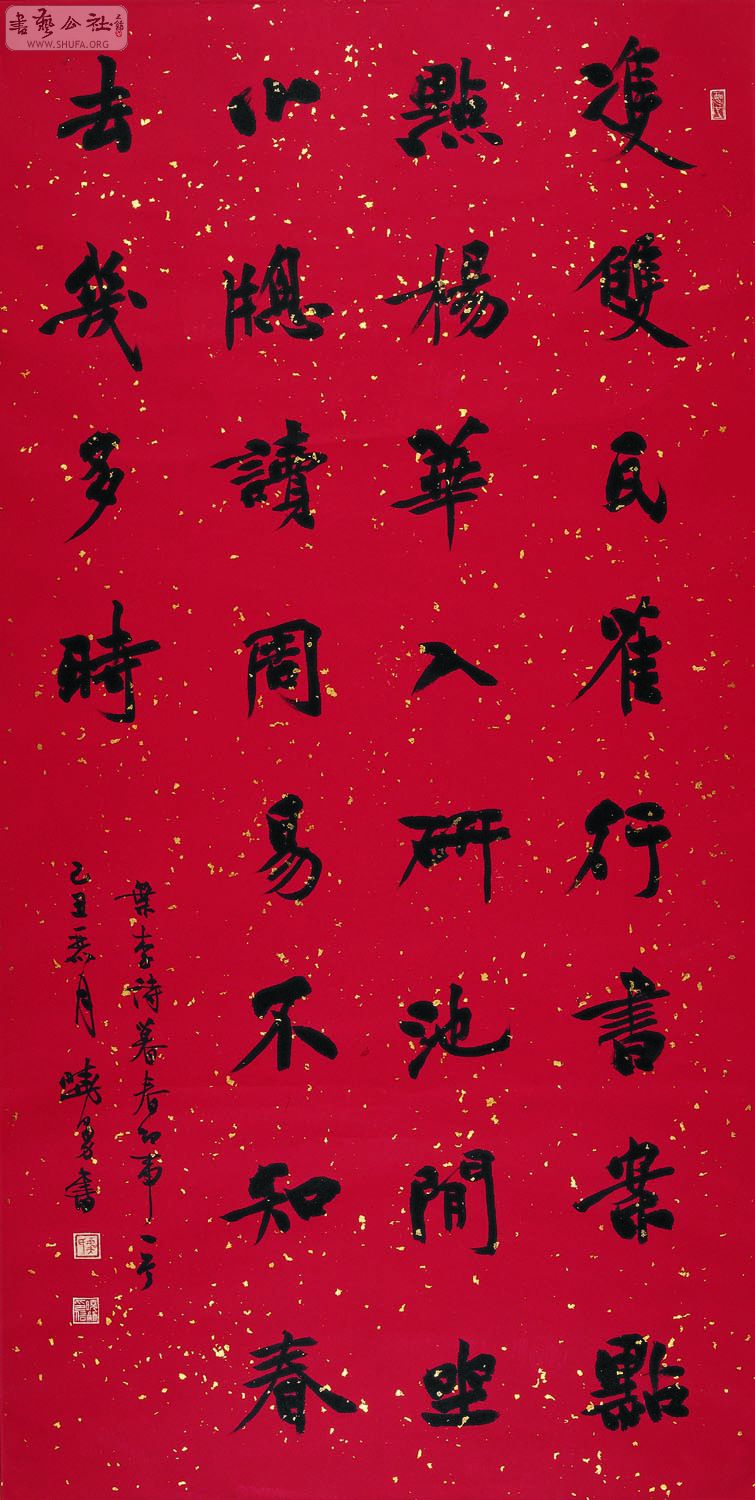 書藝公社
WWW.SHUFA.ORG
雙雙瓦雀行書案點
點楊華入研池閒坐
小牕讀周易不知春
去幾多時
葉李詩暮春即事一首
己丑月曉勇書